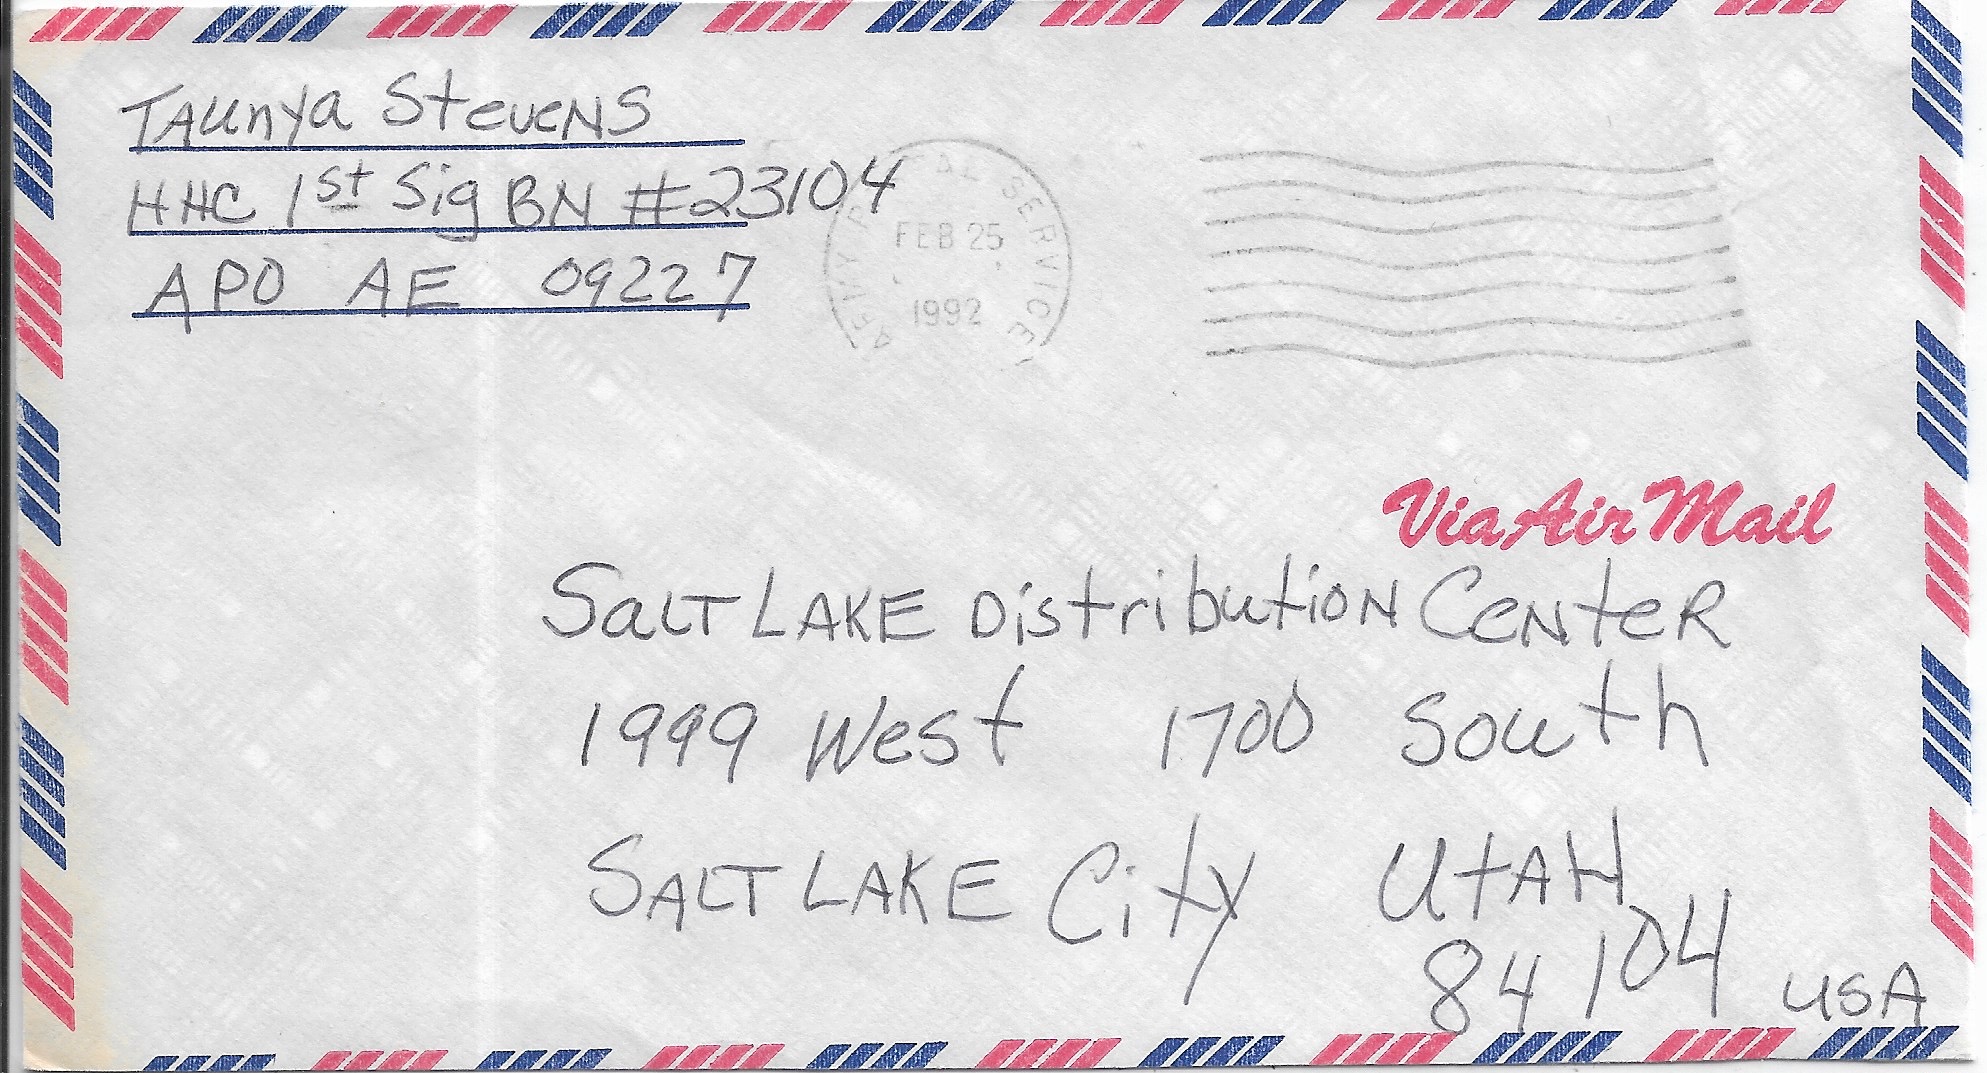 TAunya Stevens
HHC 1st Sig BN #23104
APO AE 09227
ARMY POSTAL SERVICE
FEB 25
1992
Via Air Mail
SaLT LAKE DistributioN CeNteR
1999 West 1700 South
SALT LAKE City UtAH
84104 USA